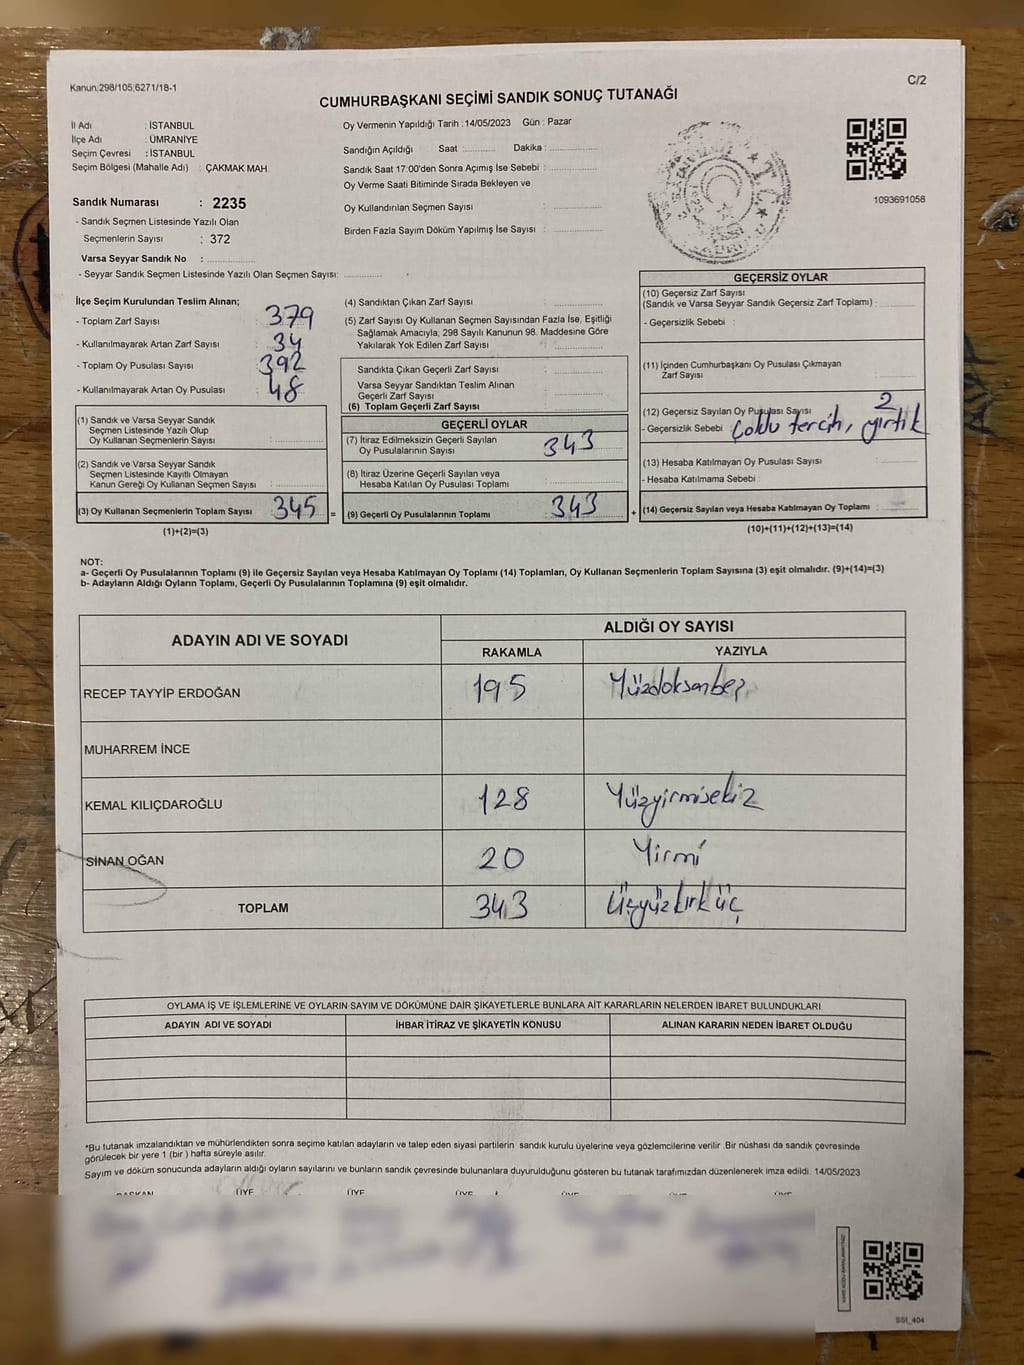 Kanun;298/105;6271/18-1
C/2
CUMHURBAŞKANI SEÇİMİ SANDIK SONUÇ TUTANAĞI
İl Adı : İSTANBUL
İlçe Adı : ÜMRANİYE
Seçim Çevresi : İSTANBUL
Seçim Bölgesi (Mahalle Adı) : ÇAKMAK MAH.
Sandık Numarası : 2235
- Sandık Seçmen Listesinde Yazılı Olan
Seçmenlerin Sayısı : 372
Varsa Seyyar Sandık No :
- Seyyar Sandık Seçmen Listesinde Yazılı Olan Seçmen Sayısı:
Oy Vermenin Yapıldığı Tarih :14/05/2023 Gün : Pazar
Sandığın Açıldığı Saat : Dakika :
Sandık Saat 17:00'den Sonra Açımış İse Sebebi :
Oy Verme Saati Bitiminde Sırada Bekleyen ve
Oy Kullandırılan Seçmen Sayısı :
Birden Fazla Sayım Döküm Yapılmış İse Sayısı :
1093691058
İlçe Seçim Kurulundan Teslim Alınan;
- Toplam Zarf Sayısı : 379
- Kullanılmayarak Artan Zarf Sayısı : 34
- Toplam Oy Pusulası Sayısı : 392
- Kullanılmayarak Artan Oy Pusulası : 48
(1) Sandık ve Varsa Seyyar Sandık
Seçmen Listesinde Yazılı Olup
Oy Kullanan Seçmenlerin Sayısı :
(2) Sandık ve Varsa Seyyar Sandık
Seçmen Listesinde Kayıtlı Olmayan
Kanun Gereği Oy Kullanan Seçmen Sayısı :
(3) Oy Kullanan Seçmenlerin Toplam Sayısı : 345 =
(1)+(2)=(3)
(4) Sandıktan Çıkan Zarf Sayısı :
(5) Zarf Sayısı Oy Kullanan Seçmen Sayısından Fazla İse, Eşitliği
Sağlamak Amacıyla, 298 Sayılı Kanunun 98. Maddesine Göre
Yakılarak Yok Edilen Zarf Sayısı :
Sandıkta Çıkan Geçerli Zarf Sayısı :
Varsa Seyyar Sandıktan Teslim Alınan
Geçerli Zarf Sayısı :
(6) Toplam Geçerli Zarf Sayısı :
GEÇERLİ OYLAR
(7) İtiraz Edilmeksizin Geçerli Sayılan
Oy Pusulalarının Sayısı : 343
(8) İtiraz Üzerine Geçerli Sayılan veya
Hesaba Katılan Oy Pusulası Toplamı :
(9) Geçerli Oy Pusulalarının Toplamı : 343 +
GEÇERSİZ OYLAR
(10) Geçersiz Zarf Sayısı
(Sandık ve Varsa Seyyar Sandık Geçersiz Zarf Toplamı) :
- Geçersizlik Sebebi :
(11) İçinden Cumhurbaşkanı Oy Pusulası Çıkmayan
Zarf Sayısı :
(12) Geçersiz Sayılan Oy Pusulası Sayısı : 2
- Geçersizlik Sebebi : çoklu tercih, yırtık
(13) Hesaba Katılmayan Oy Pusulası Sayısı :
- Hesaba Katılmama Sebebi :
(14) Geçersiz Sayılan veya Hesaba Katılmayan Oy Toplamı :
(10)+(11)+(12)+(13)=(14)
NOT:
a- Geçerli Oy Pusulalarının Toplamı (9) ile Geçersiz Sayılan veya Hesaba Katılmayan Oy Toplamı (14) Toplamları, Oy Kullanan Seçmenlerin Toplam Sayısına (3) eşit olmalıdır. (9)+(14)=(3)
b- Adayların Aldığı Oyların Toplamı, Geçerli Oy Pusulalarının Toplamına (9) eşit olmalıdır.
ADAYIN ADI VE SOYADI
ALDIĞI OY SAYISI
RAKAMLA YAZIYLA
RECEP TAYYİP ERDOĞAN 195 Yüzdoksanbeş
MUHARREM İNCE
KEMAL KILIÇDAROĞLU 128 Yüzyirmisekiz
SİNAN OĞAN 20 Yirmi
TOPLAM 343 Üçyüzkırküç
OYLAMA İŞ VE İŞLEMLERİNE VE OYLARIN SAYIM VE DÖKÜMÜNE DAİR ŞİKAYETLERLE BUNLARA AİT KARARLARIN NELERDEN İBARET BULUNDUKLARI
ADAYIN ADI VE SOYADI İHBAR İTİRAZ VE ŞİKAYETİN KONUSU ALINAN KARARIN NEDEN İBARET OLDUĞU
*Bu tutanak imzalandıktan ve mühürlendikten sonra seçime katılan adayların ve talep eden siyasi partilerin sandık kurulu üyelerine veya gözlemcilerine verilir. Bir nüshası da sandık çevresinde
görülecek bir yere 1 (bir ) hafta süreyle asılır.
Sayım ve döküm sonucunda adayların aldığı oyların sayılarını ve bunların sandık çevresinde bulunanlara duyurulduğunu gösteren bu tutanak tarafımızdan düzenlenerek imza edildi. 14/05/2023
BAŞKAN ÜYE ÜYE ÜYE ÜYE ÜYE ÜYE
SSI_404